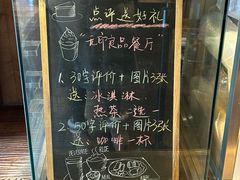 点评送好礼
1. 30字评价+图片3张
送:冰淇淋
热茶 选一
2. 50字评价+图片3张
送 咖啡一杯